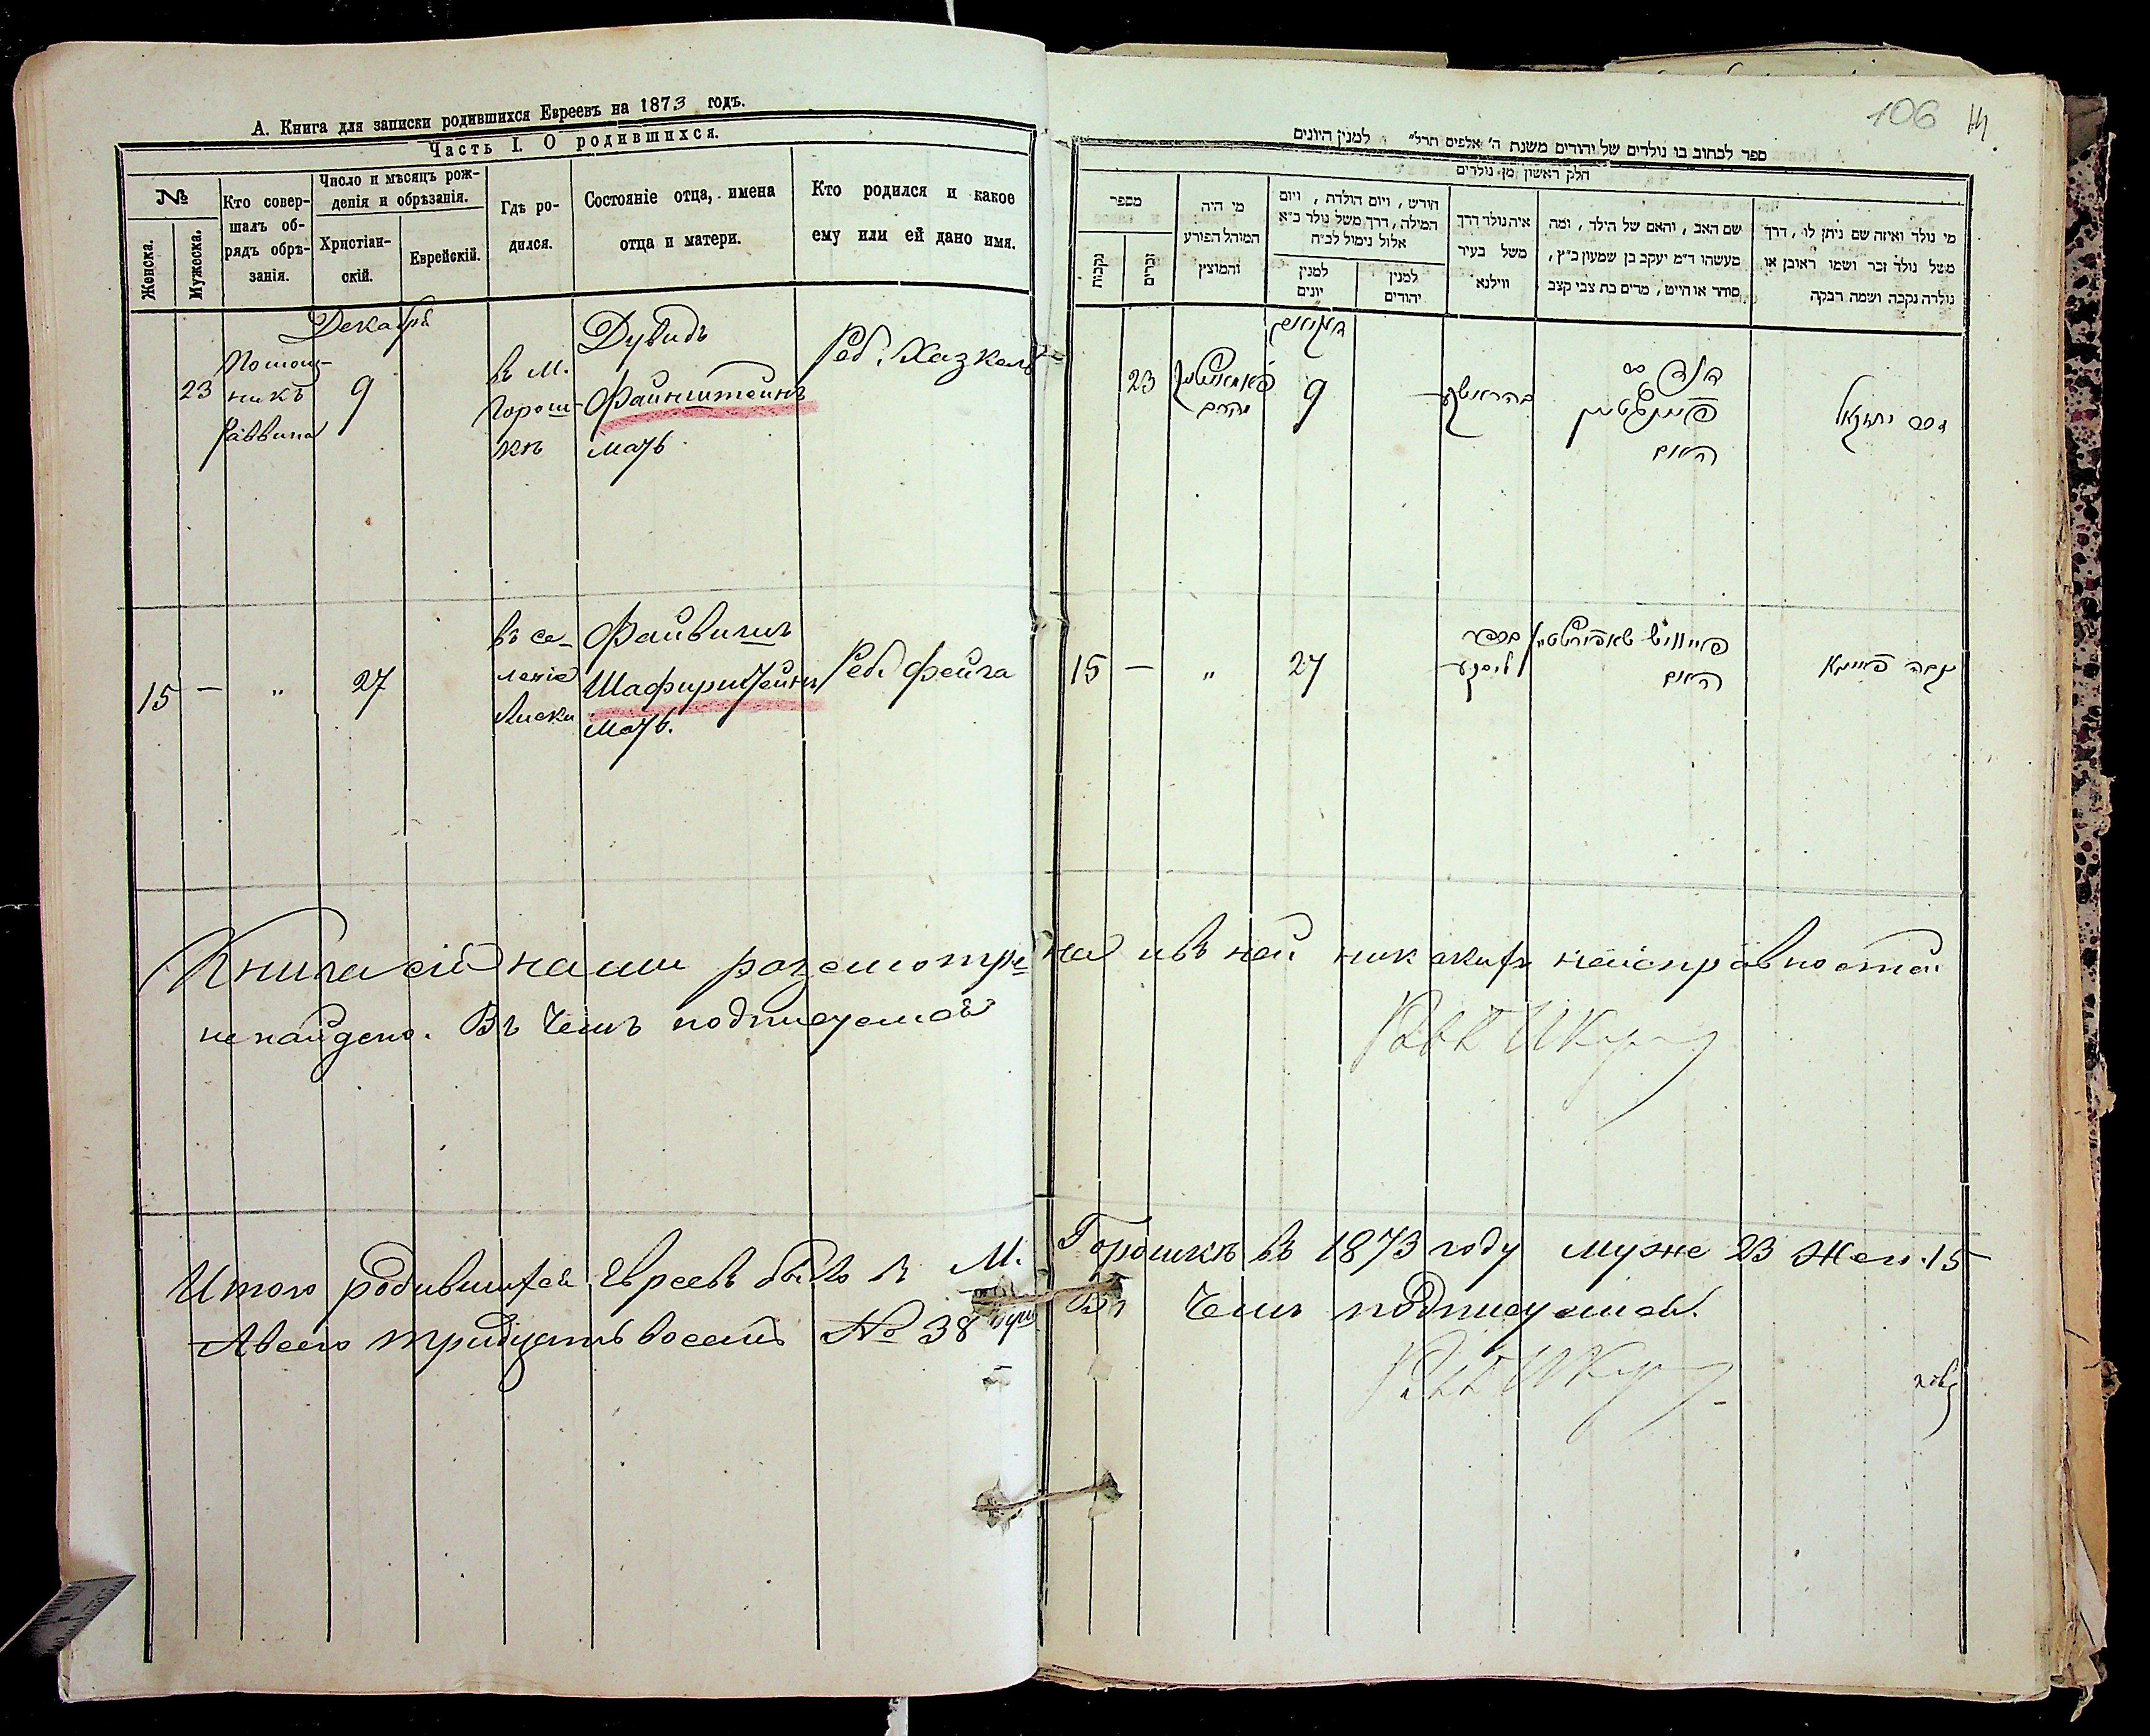 А. Книга для записки родившихся Евреевъ на 1873 годъ.
Часть I. О родившихся.
№
Женска.
Мужеска.
Кто совер-
шалъ об-
рядъ обрѣ-
занія.
Число и мѣсяцъ рож-
денія и обрѣзанія.
Христіан-
скій.
Еврейскій.
Гдѣ ро-
дился.
Состояніе отца, имена
отца и матери.
Кто родился и какое
ему или ей дано имя.
Декабрь
23
Помощ-
никъ
раввина
9
въ М.
Горош-
кѣ
Дувидъ
Файнштейнъ
мать
Реб. Хазкель
15 — „ 27
въ се-
леніе
Лиски
Файвишъ
Шафирштейнъ
мать.
Реб. Фейга
Книга сія нами разсмотрена и въ ней никакихъ неисправностей
не найдено. Въ чемъ подписуемся
Итого родившихся Евреевъ было в М. Горошкѣ въ 1873 году муже 23 Жен. 15
А всего тридцать восемь № 38 Въ чемъ подписуемся.
106
ספר לכתוב בו נולדים של יהודים משנת ה׳ אלפים תרל״ למנין היונים
חלק ראשון מן נולדים
מספר
נקבות
זכרים
מי היה
המוהל הפורע
והמוצץ
חודש, ויום הולדת, ויום
המילה, דרך משל נולד כ״א
אלול נימול לכ״ח
למנין
יונים
למנין
יהודים
איה נולד דרך
משל בעיר
ווילנא
שם האב, והאם של הילד, ומה
מעשהו ד״מ יעקב בן שמעון כ״ץ,
סוחר או חייט, מרים בת צבי קצב
מי נולד ואיזה שם ניתן לו, דרך
משל נולד זכר ושמו ראובן או
נולדה נקבה ושמה רבקה
23
9
פיינשטיין
האם
זכר יחזקאל
15 — „ 27
האם
נקבה פייגא